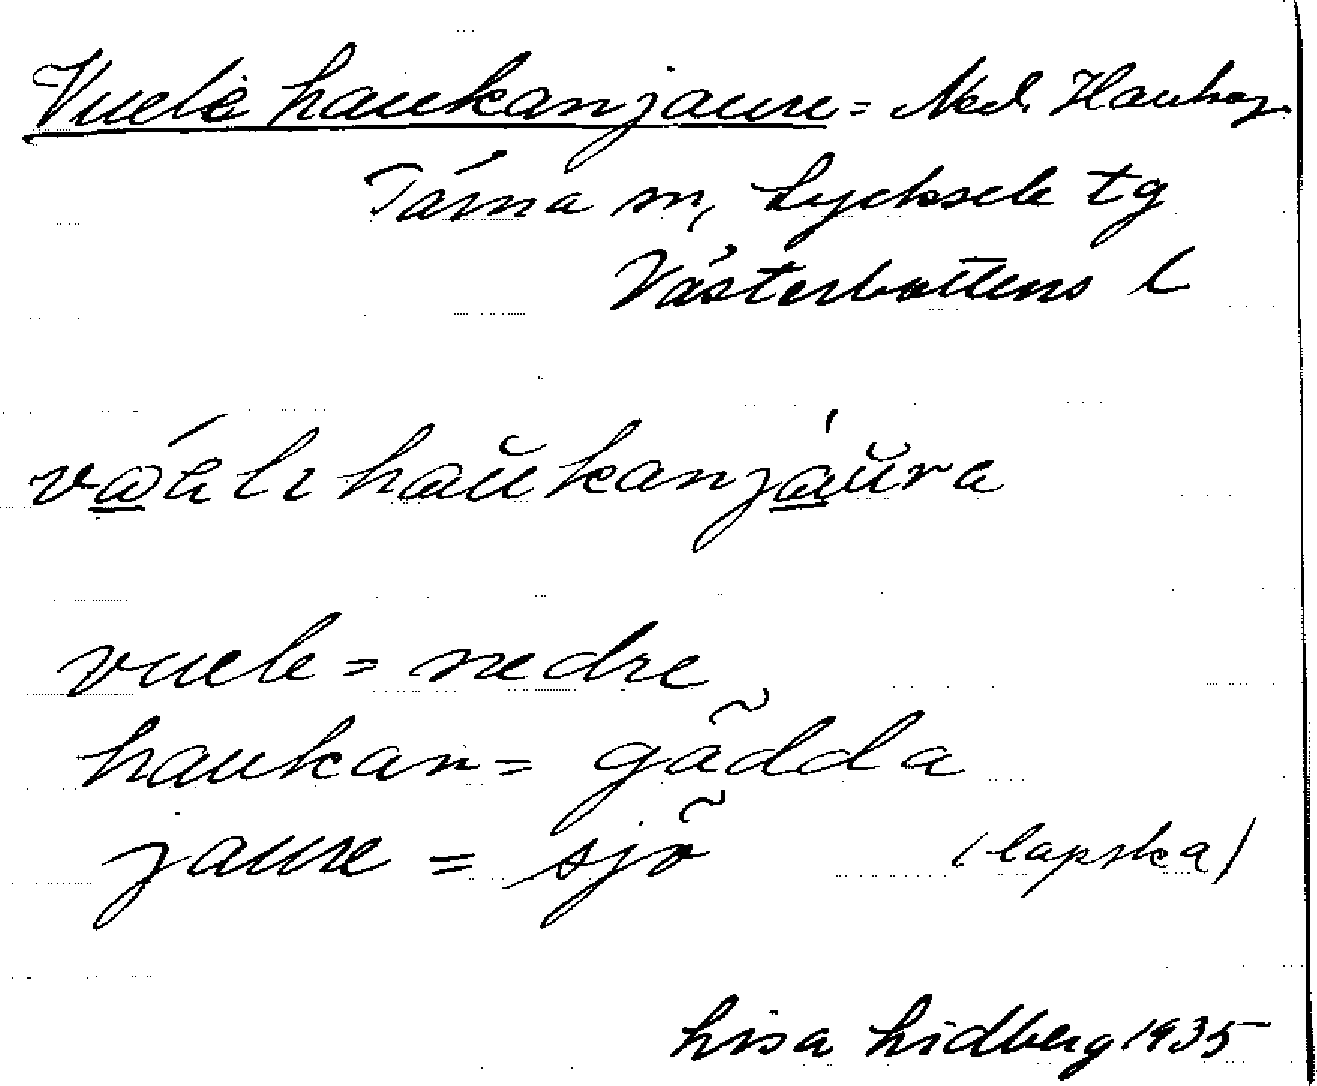 Vuele haukanjaure = Ned. Haukaz.
Tärna sn, Lycksele tg
Västerbottens l
vaa̍li haŭkanja̍ŭra
vuele = nedre
haukan = gädda
jaure = sjö (lapska)
Lisa Lidberg 1935